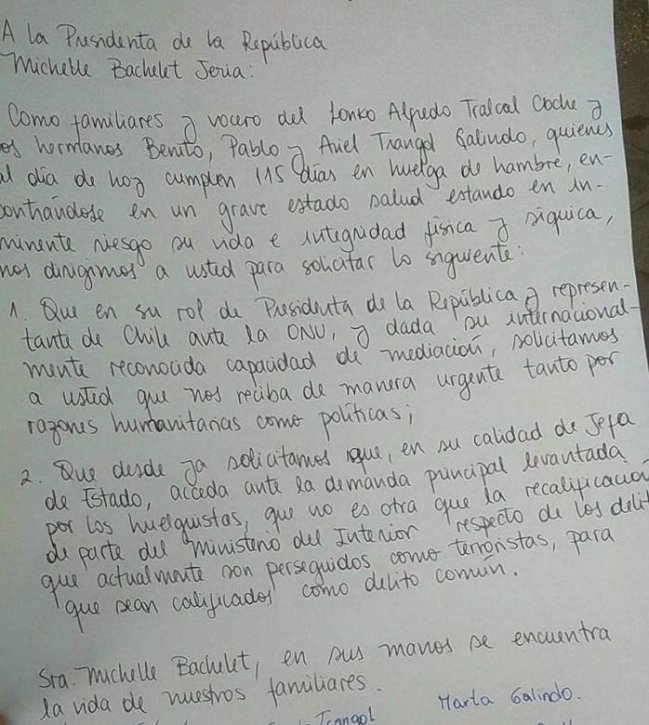 A la Presidenta de la República
Michelle Bachelet Jeria:
Como familiares y vocero del Lonko Alfredo Tralcal Coche y
os hermanos Benito, Pablo y Ariel Trangol Galindo, quienes
al día de hoy cumplen 115 días en huelga de hambre, en-
contrándose en un grave estado salud estando en in-
minente riesgo su vida e integridad física y síquica,
nos dirigimos a usted para solicitar lo siguiente:
1. Que en su rol de Presidenta de la República y represen-
tante de Chile ante la ONU, y dada su internacional-
mente reconocida capacidad de mediación, solicitamos
a usted que nos reciba de manera urgente tanto por
razones humanitarias como políticas;
2. Que desde ya solicitamos que, en su calidad de Jefa
de Estado, acceda ante la demanda principal levantada
por los huelguistas, que no es otra que la recalificación
de parte del Ministerio del Interior respecto de los delit
que actualmente son perseguidos como terroristas, para
que sean calificados como delito común.
Sra. Michelle Bachelet, en sus manos se encuentra
la vida de nuestros familiares.
Trangol Marta Galindo.